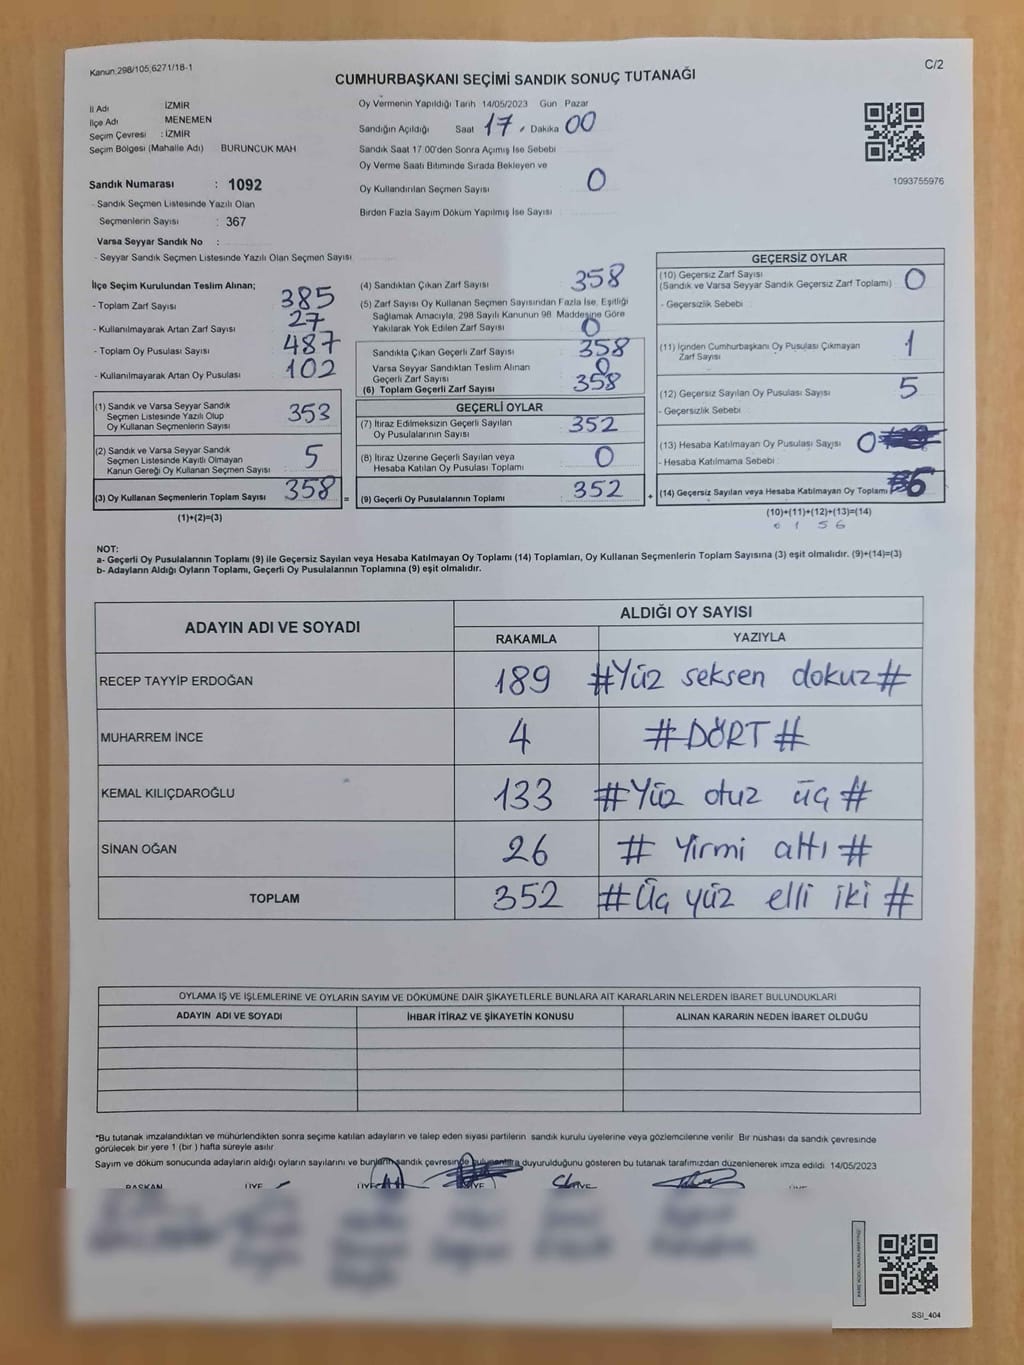 Kanun,298/105,6271/18-1
C/2
CUMHURBAŞKANI SEÇİMİ SANDIK SONUÇ TUTANAĞI
İl Adı İZMİR
İlçe Adı MENEMEN
Seçim Çevresi : İZMİR
Seçim Bölgesi (Mahalle Adı) BURUNCUK MAH
Sandık Numarası : 1092
- Sandık Seçmen Listesinde Yazılı Olan
Seçmenlerin Sayısı : 367
Varsa Seyyar Sandık No :
- Seyyar Sandık Seçmen Listesinde Yazılı Olan Seçmen Sayısı
Oy Vermenin Yapıldığı Tarih 14/05/2023 Gün Pazar
Sandığın Açıldığı Saat 17 , Dakika 00
Sandık Saat 17 00'den Sonra Açımış İse Sebebi
Oy Verme Saati Bitiminde Sırada Bekleyen ve
Oy Kullandırılan Seçmen Sayısı 0
Birden Fazla Sayım Döküm Yapılmış İse Sayısı
1093755976
İlçe Seçim Kurulundan Teslim Alınan;
- Toplam Zarf Sayısı 385
- Kullanılmayarak Artan Zarf Sayısı 27
- Toplam Oy Pusulası Sayısı 487
- Kullanılmayarak Artan Oy Pusulası 102
(1) Sandık ve Varsa Seyyar Sandık
Seçmen Listesinde Yazılı Olup
Oy Kullanan Seçmenlerin Sayısı 353
(2) Sandık ve Varsa Seyyar Sandık
Seçmen Listesinde Kayıtlı Olmayan
Kanun Gereği Oy Kullanan Seçmen Sayısı 5
(3) Oy Kullanan Seçmenlerin Toplam Sayısı 358 =
(1)+(2)=(3)
(4) Sandıktan Çıkan Zarf Sayısı 358
(5) Zarf Sayısı Oy Kullanan Seçmen Sayısından Fazla İse, Eşitliği
Sağlamak Amacıyla, 298 Sayılı Kanunun 98 Maddesine Göre
Yakılarak Yok Edilen Zarf Sayısı 0
Sandıkta Çıkan Geçerli Zarf Sayısı 358
Varsa Seyyar Sandıktan Teslim Alınan
Geçerli Zarf Sayısı 0
(6) Toplam Geçerli Zarf Sayısı 358
GEÇERLİ OYLAR
(7) İtiraz Edilmeksizin Geçerli Sayılan
Oy Pusulalarının Sayısı 352
(8) İtiraz Üzerine Geçerli Sayılan veya
Hesaba Katılan Oy Pusulası Toplamı 0
(9) Geçerli Oy Pusulalarının Toplamı 352 +
GEÇERSİZ OYLAR
(10) Geçersiz Zarf Sayısı
(Sandık ve Varsa Seyyar Sandık Geçersiz Zarf Toplamı) 0
- Geçersizlik Sebebi
(11) İçinden Cumhurbaşkanı Oy Pusulası Çıkmayan
Zarf Sayısı 1
(12) Geçersiz Sayılan Oy Pusulası Sayısı 5
- Geçersizlik Sebebi
(13) Hesaba Katılmayan Oy Pusulası Sayısı 0
- Hesaba Katılmama Sebebi :
(14) Geçersiz Sayılan veya Hesaba Katılmayan Oy Toplamı 6
(10)+(11)+(12)+(13)=(14)
0 1 5 6
NOT:
a- Geçerli Oy Pusulalarının Toplamı (9) ile Geçersiz Sayılan veya Hesaba Katılmayan Oy Toplamı (14) Toplamları, Oy Kullanan Seçmenlerin Toplam Sayısına (3) eşit olmalıdır. (9)+(14)=(3)
b- Adayların Aldığı Oyların Toplamı, Geçerli Oy Pusulalarının Toplamına (9) eşit olmalıdır.
ADAYIN ADI VE SOYADI
ALDIĞI OY SAYISI
RAKAMLA YAZIYLA
RECEP TAYYİP ERDOĞAN 189 #Yüz seksen dokuz#
MUHARREM İNCE 4 #DÖRT#
KEMAL KILIÇDAROĞLU 133 #Yüz otuz üç#
SİNAN OĞAN 26 # Yirmi altı #
TOPLAM 352 #Üç yüz elli iki #
OYLAMA İŞ VE İŞLEMLERİNE VE OYLARIN SAYIM VE DÖKÜMÜNE DAİR ŞİKAYETLERLE BUNLARA AİT KARARLARIN NELERDEN İBARET BULUNDUKLARI
ADAYIN ADI VE SOYADI İHBAR İTİRAZ VE ŞİKAYETİN KONUSU ALINAN KARARIN NEDEN İBARET OLDUĞU
*Bu tutanak imzalandıktan ve mühürlendikten sonra seçime katılan adayların ve talep eden siyasi partilerin sandık kurulu üyelerine veya gözlemcilerine verilir Bir nüshası da sandık çevresinde
görülecek bir yere 1 (bir ) hafta süreyle asılır
Sayım ve döküm sonucunda adayların aldığı oyların sayılarını ve bunların sandık çevresinde duyurulduğunu gösteren bu tutanak tarafımızdan düzenlenerek imza edildi 14/05/2023
BAŞKAN ÜYE ÜYE ÜYE ÜYE
SSI_404